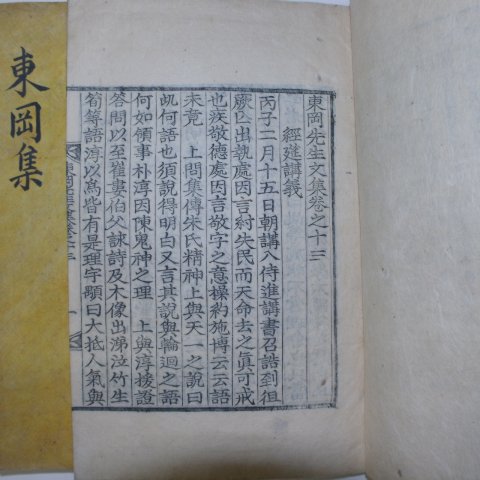 東岡集
東岡先生文集卷之十三
經筵講義
丙子二月十五日朝講入侍進講書召誥到徂
厥亡出執處因言紂失民而天命去之眞可戒
也疾敬德處因言敬字之意操約施博云云語
未竟 上問集傳朱氏精神上與天一之說曰
此何語也須說得明白又言其說與輪迴之語
何如領事朴淳因陳鬼神之理 上與淳援證
答問以至崔婁伯父諫詩及木像出涕泣竹生
筍等語淳以爲皆有是理宇顒曰大抵人氣與